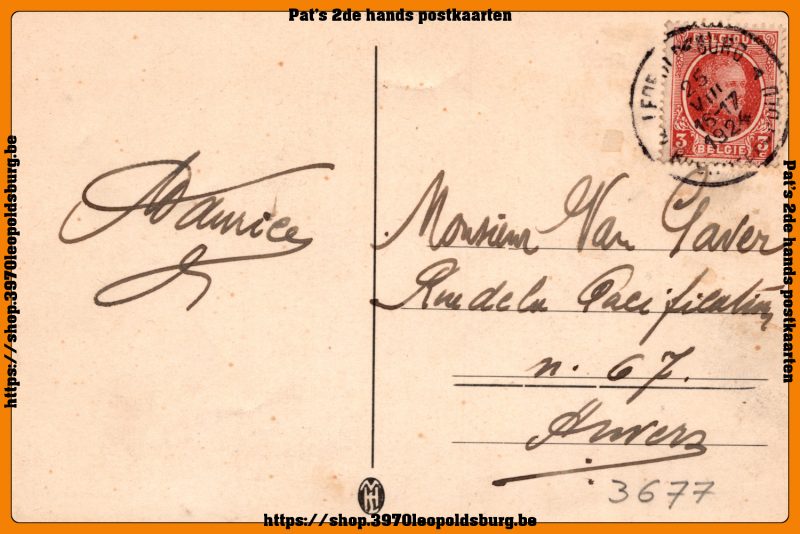 Pat's 2de hands postkaarten
https://shop.3970leopoldsburg.be
Maurice
BELGIQUE
LEOPOLDSBURG A
25
VIII
16-17
1924
3
BELGIE
3
Monsieur Van Gaver
Rue de la Pacification
n. 67.
Anvers
3677
MH
Pat's 2de hands postkaarten
https://shop.3970leopoldsburg.be